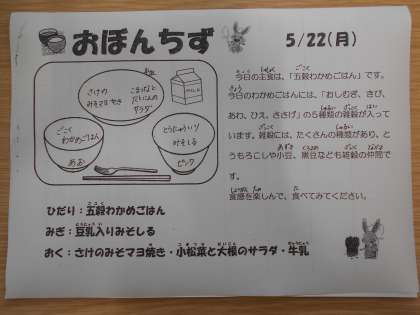 おぼんちず
5/22(月)
さけの
みそマヨやき
こまつなと
だいこんの
サラダ
MILK
ごこく
わかめごはん
あお
とうにゅういり
みそしる
ピンク
今日の主食は、「五穀わかめごはん」です。
今日のわかめごはんには、「おしむぎ、きび、
あわ、ひえ、ささげ」の5種類の雑穀が入って
います。雑穀には、たくさんの種類があり、と
うもろこしや小豆、黒豆なども雑穀の仲間で
す。
食感を楽しんで、食べてみてください。
ひだり：五穀わかめごはん
みぎ：豆乳入りみそしる
おく：さけのみそマヨ焼き・小松菜と大根のサラダ・牛乳